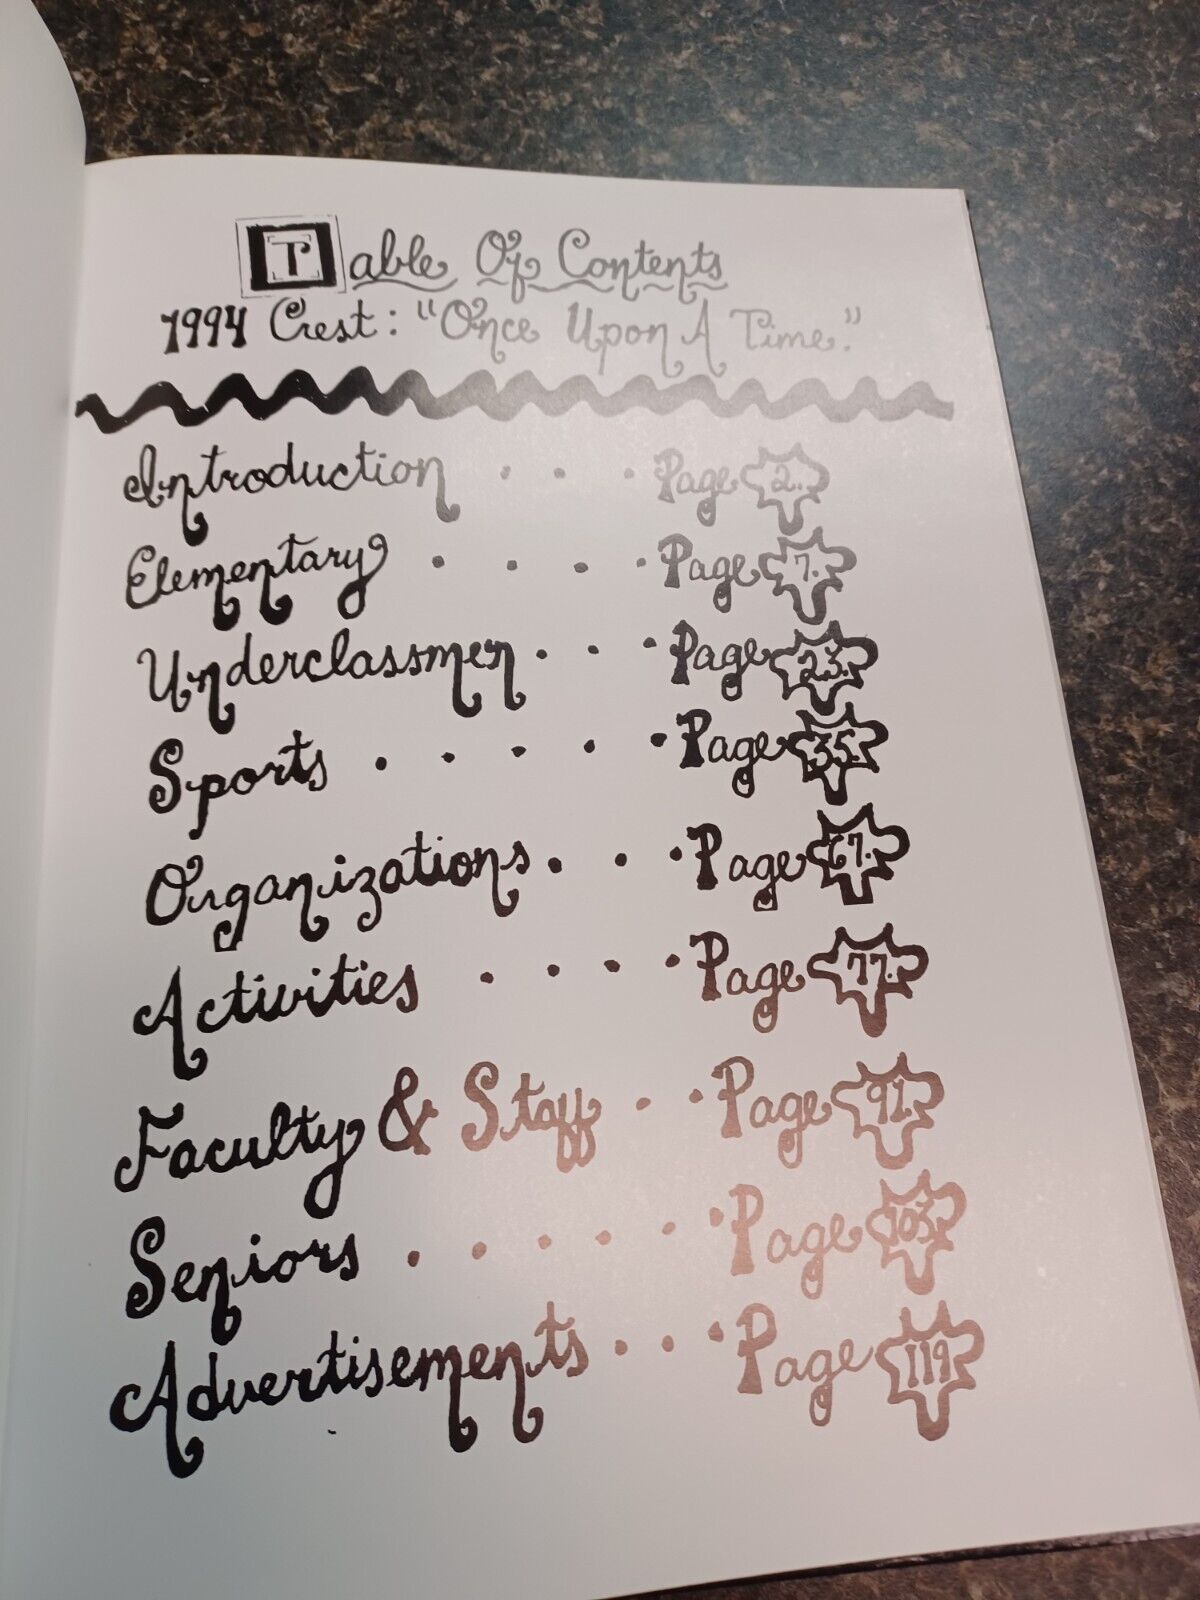 Table Of Contents
1994 Crest: "Once Upon A Time."
Introduction . . . Page 2.
Elementary . . . . Page 7.
Underclassmen . . . Page 23.
Sports . . . . . Page 35.
Organizations . . . Page 67.
Activities . . . . Page 77.
Faculty & Staff . . Page 91.
Seniors . . . . . Page 103.
Advertisements . . . Page 119